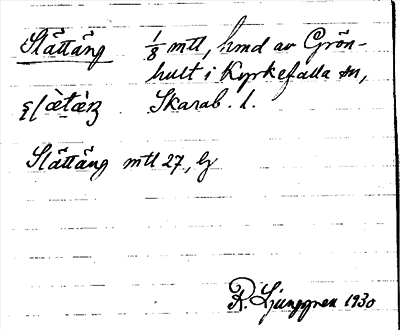 Slättäng 1/8 mtl, hmd av Grön-
hult i Kyrkefalla sn,
Skarab. l.
Slättäng mtl 27, lj
R. Ljunggren 1930